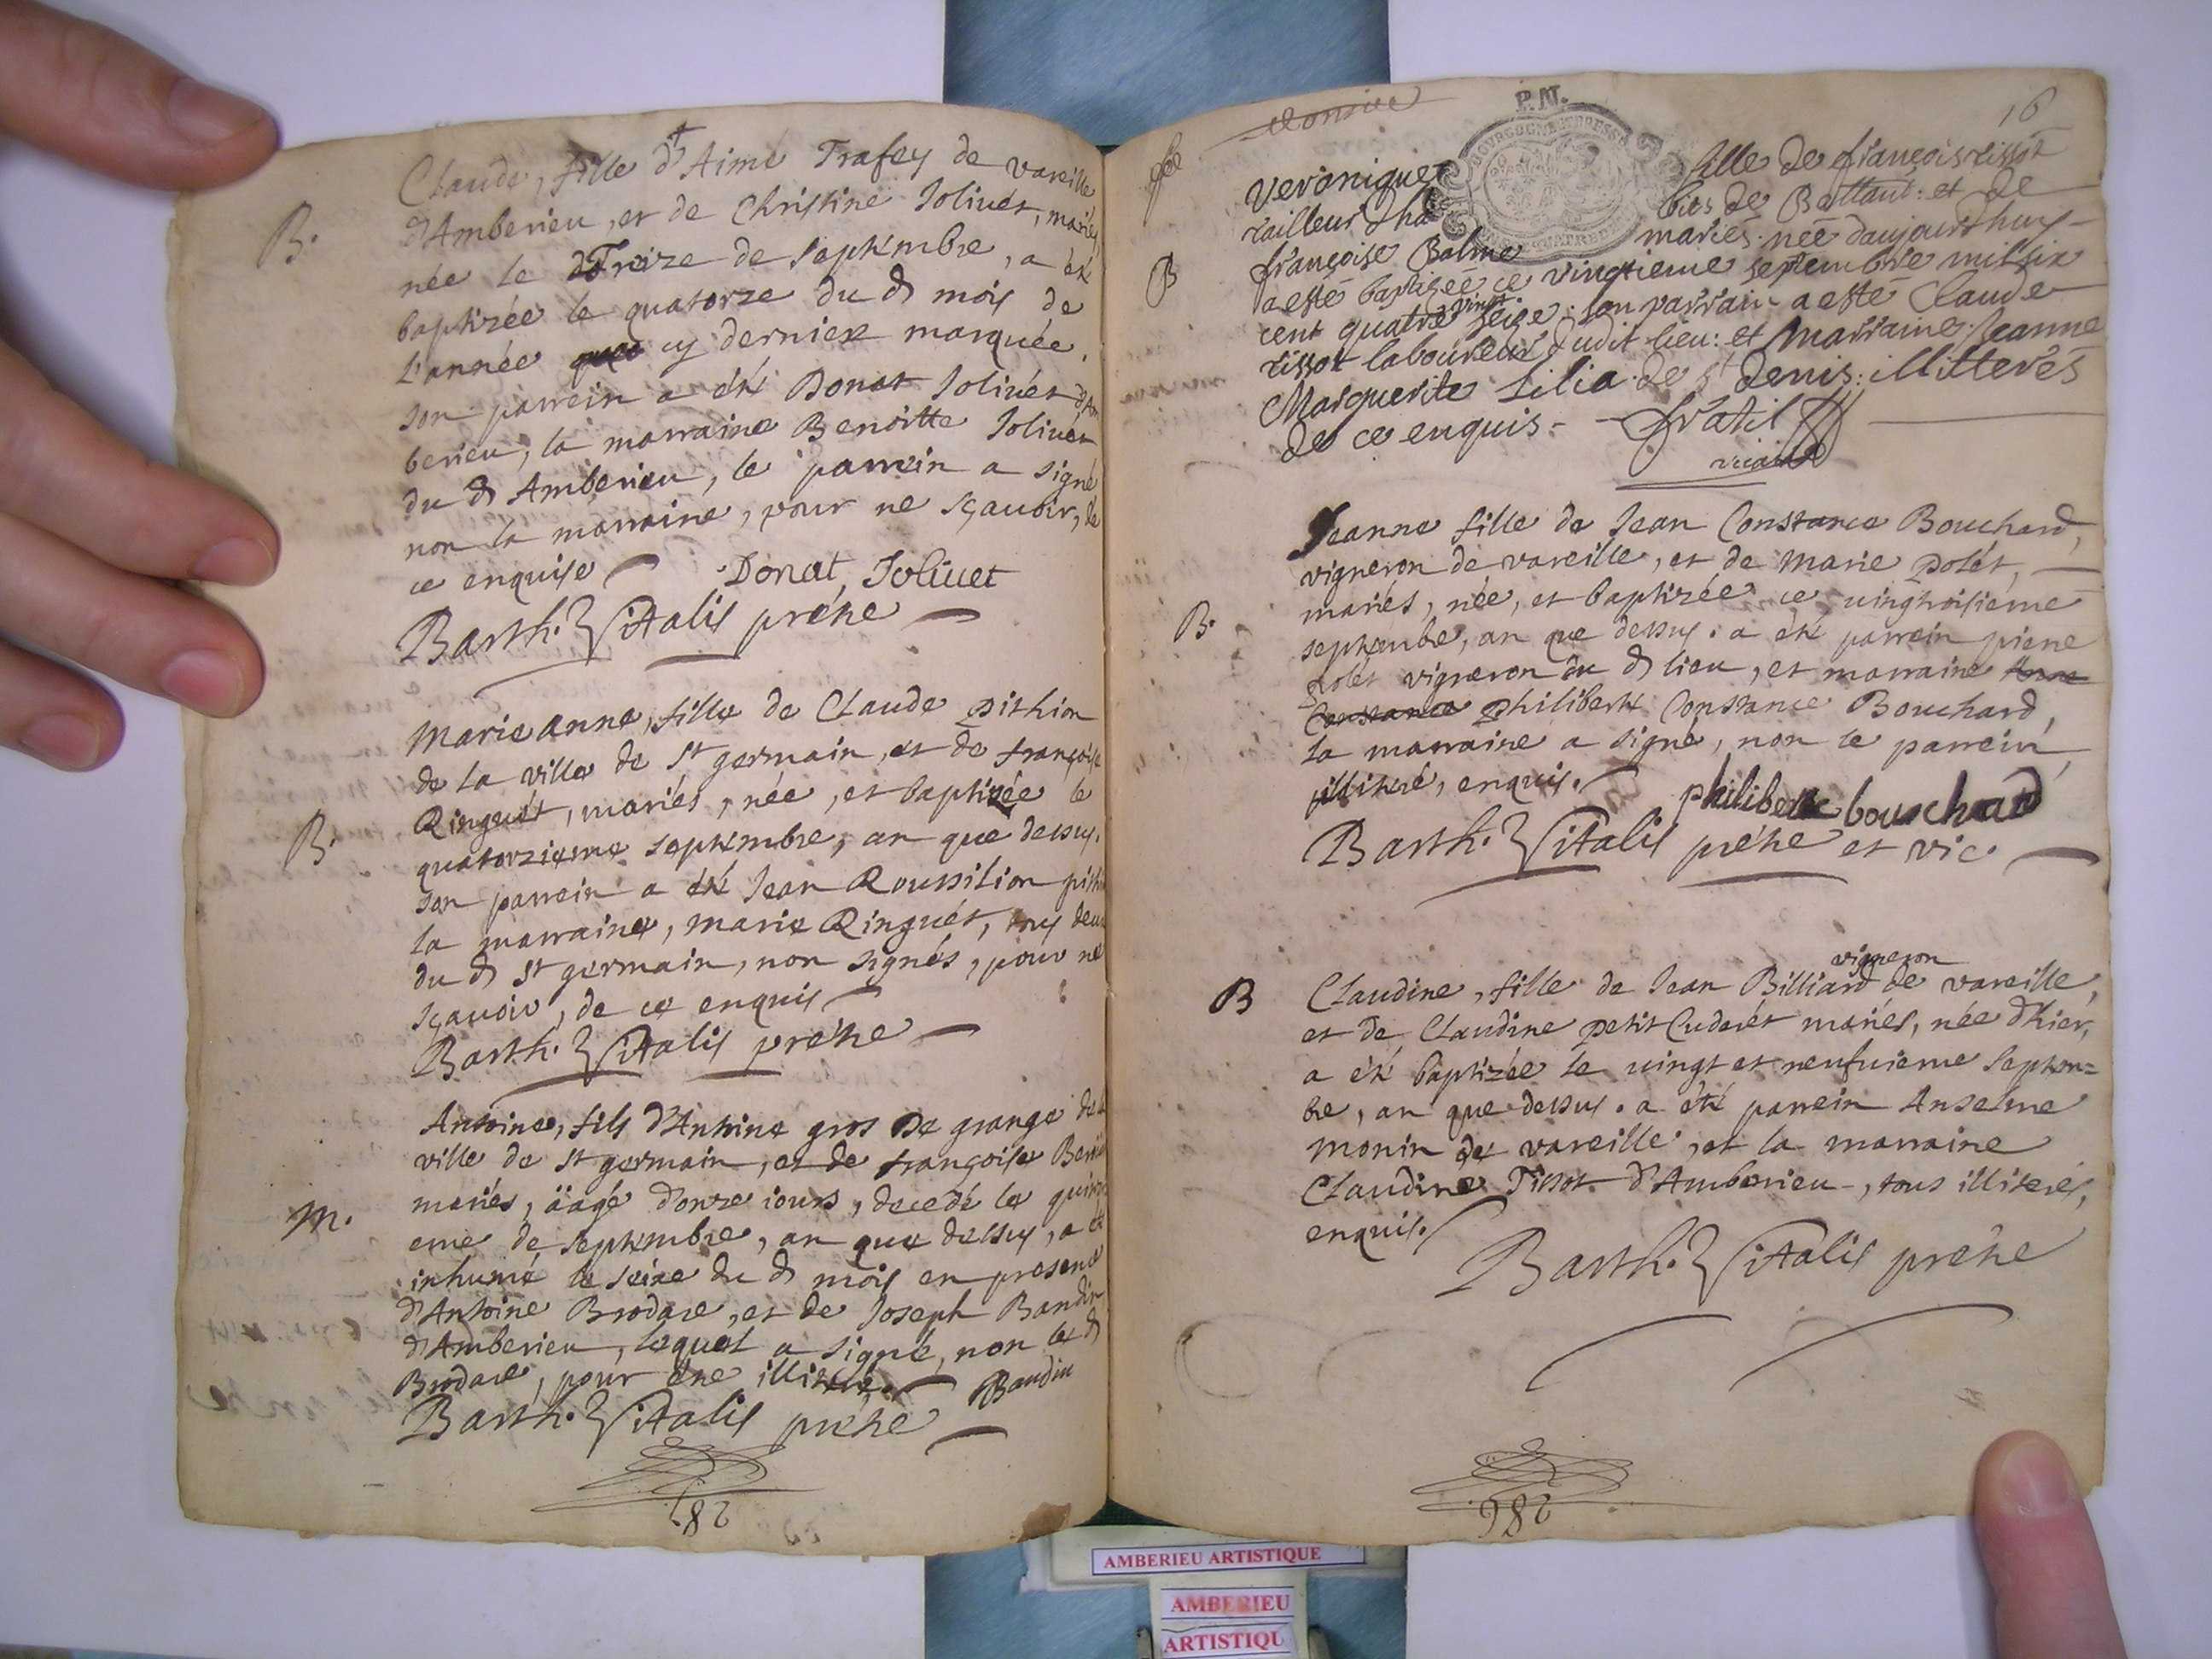 B.
Claude, fille d'Aimé Trafey de vareille
d'Amberieu, et de Christine Joliuet, mariés,
née le Treize de septembre, a été
baptizée le quatorze du d mois de
L'année cy derniere marquée,
son parrein a été Donat Joliuet d'Am
berieu, la marraine Benoitte Joliuet
du d Amberieu, le parrein a signé
non la marraine, pour ne sçauoir, de
ce enquise Donat Joliuet
Barth. Vitalis prétre
B.
Marie anne, fille de Claude pithion
de la ville de St germain, et de françoise
Ringuét, mariés, née, et baptizée le
quatorzieme septembre, an que dessus.
son parrein a été Jean Roussilion
la marraine, marie Ringuét, tous deux
du d St germain, non signés, pour ne
sçauoir, de ce enquis
Barth. Vitalis prétre
M.
Antoine, fils d'Antoine gros De grange de la
ville de St germain, et de françoise
mariés, äagé d'onze iours, decedé le quinzi
eme de septembre, an que dessus, a été
inhumé le seize du d mois en presence
d'Antoine Brodare, et de Joseph Baudin
d'Amberieu, lequel a signé, non le d
Brodare, pour étre illiteré. Baudin
Barth. Vitalis prétre
287
16
P.N.
BOURGOGNE BRESSE
Veronique fille de françois tissot
tailleur d'ha bits de Bettant: et de
B
françoise Balme mariés née daujourdhuy
a esté baptizeé ce vingtieme septembre mil six
cent quatre vingt seize: son parrain a esté Claude
tissot laboureur dudit lieu: et Marraine Jeanne
Marguerite Lilia de st denis: illitterés
de ce enquis - fratil
vicaire
B.
Jeanne fille de Jean Constance Bouchard,
vigneron de vareille, et de Marie polét,
mariés, née, et baptizée ce vingtroisieme
septembre, an que dessus. a été parrein pierre
polét vigneron du d lieu, et marraine Anne
Constance philiberte Constance Bouchard,
la marraine a signé, non le parrein
illiteré, enquis. philiberte bouschard
Barth. Vitalis prétre et vic
B
vigneron
Claudine, fille de Jean Billiard de vareille,
et de Claudine petit Cuderét mariés, née d'hier,
a été baptizée le vingt et neufuieme septem=
bre, an que dessus. a été parrein Anselme
monin de vareille, et la marraine
Claudine Tissot d'Amberieu, tous illiterés,
enquis.
Barth. Vitalis prétre
286
AMBERIEU ARTISTIQUE
AMBERIEU
ARTISTIQU